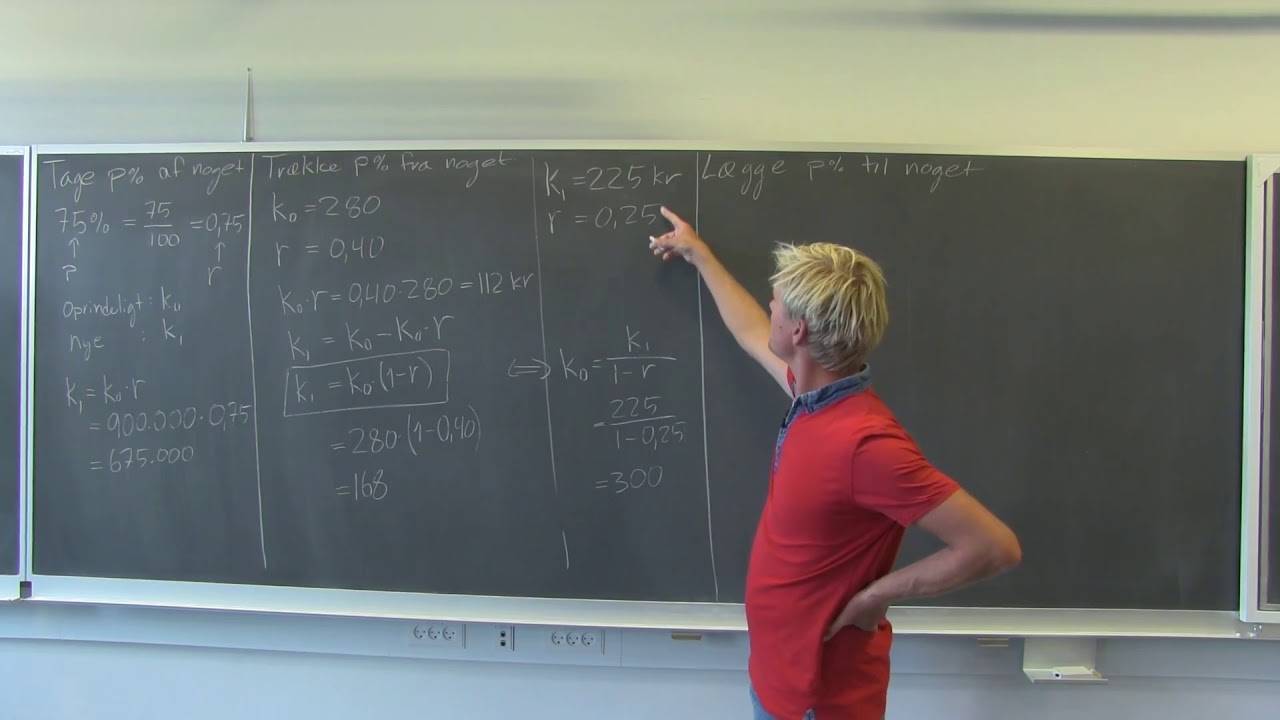 Tage p% af noget
75% = 75/100 = 0,75
↑ ↑
p r
Oprindeligt: k₀
nye : k₁
k₁ = k₀·r
= 900.000·0,75
= 675.000
Trække p% fra noget
k₀ = 280
r = 0,40
k₀·r = 0,40·280 = 112 kr
k₁ = k₀ - k₀·r
k₁ = k₀·(1-r)
= 280·(1-0,40)
= 168
k₁ = 225 kr
r = 0,25
⇔ k₀ = k₁/1-r
= 225/1-0,25
= 300
Lægge p% til noget